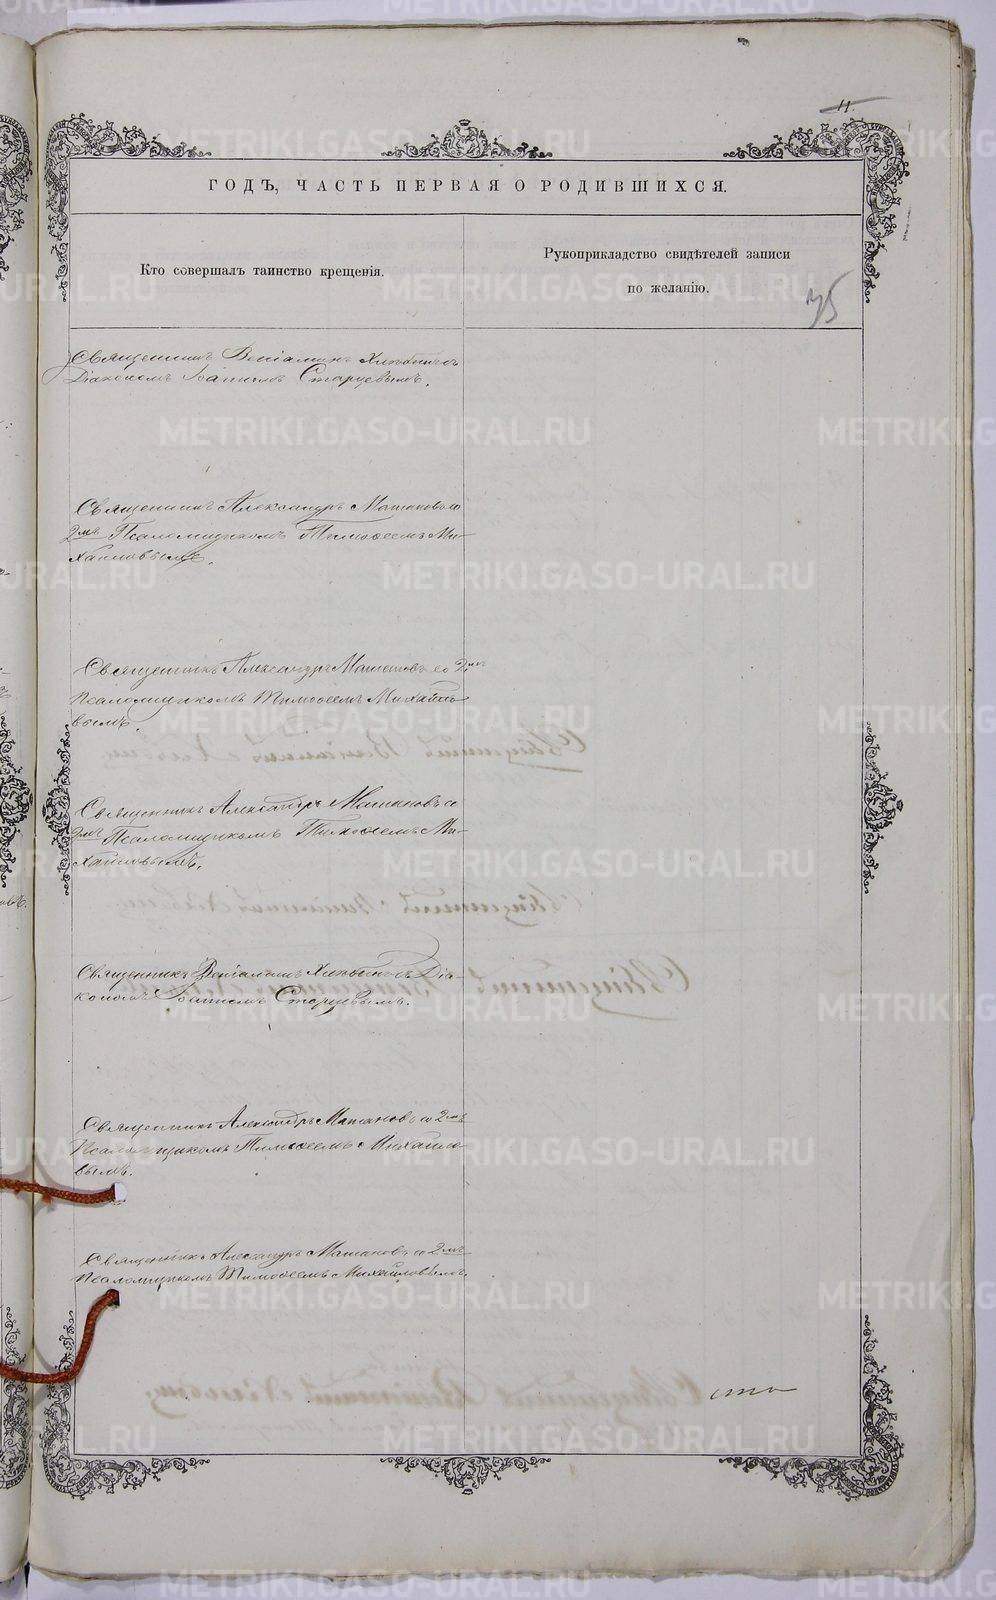 11.
ГОДЪ, ЧАСТЬ ПЕРВАЯ О РОДИВШИХСЯ.
Кто совершалъ таинство крещенія.
Рукоприкладство свидѣтелей записи
по желанію.
35
Священникъ Веніаминъ Хлѣбинъ съ
Діакономъ Старцевымъ.
Священникъ Александръ Матановъ со
2мъ Псаломщикомъ Тимоѳеемъ Ми-
хайловымъ.
Священникъ Александръ Матановъ со 2мъ
Псаломщикомъ Тимоѳеемъ Михайло-
вымъ.
Священникъ Александръ Матановъ со
2мъ Псаломщикомъ Тимоѳеемъ Ми-
хайловымъ.
Священникъ Веніаминъ съ Діа-
кономъ Старцевымъ.
Священникъ Александръ Матановъ со 2мъ
Псаломщикомъ Тимоѳеемъ Михайло-
вымъ.
Священникъ Александръ Матановъ со 2мъ
Псаломщикомъ Тимоѳеемъ Михайловымъ.
METRIKI.GASO-URAL.RU